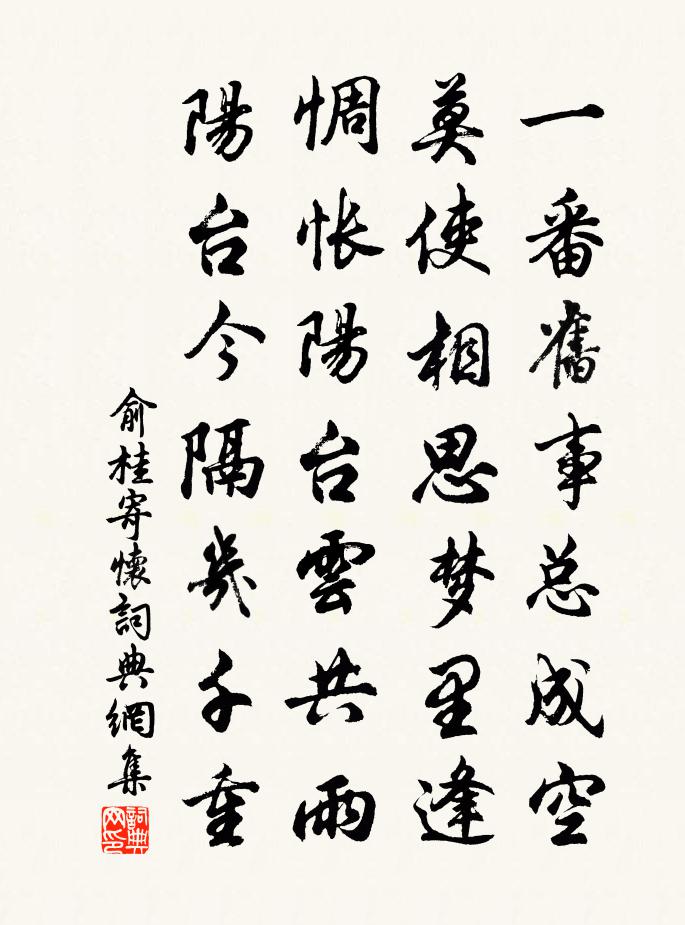 一番舊事总成空
莫使相思梦里逢
惆怅陽台雲共雨
陽台今隔幾千重
俞桂寄懷詞典網集
詞典网印